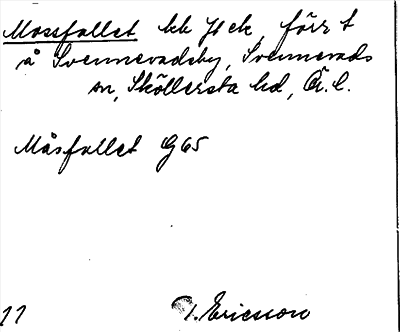 Mossfallet bb Jt ek, förr t
å Svennevadsby, Svennevads
sn, Sköllersta hd, Ö.l.
Måsfallet G65
11
I. Ericsson